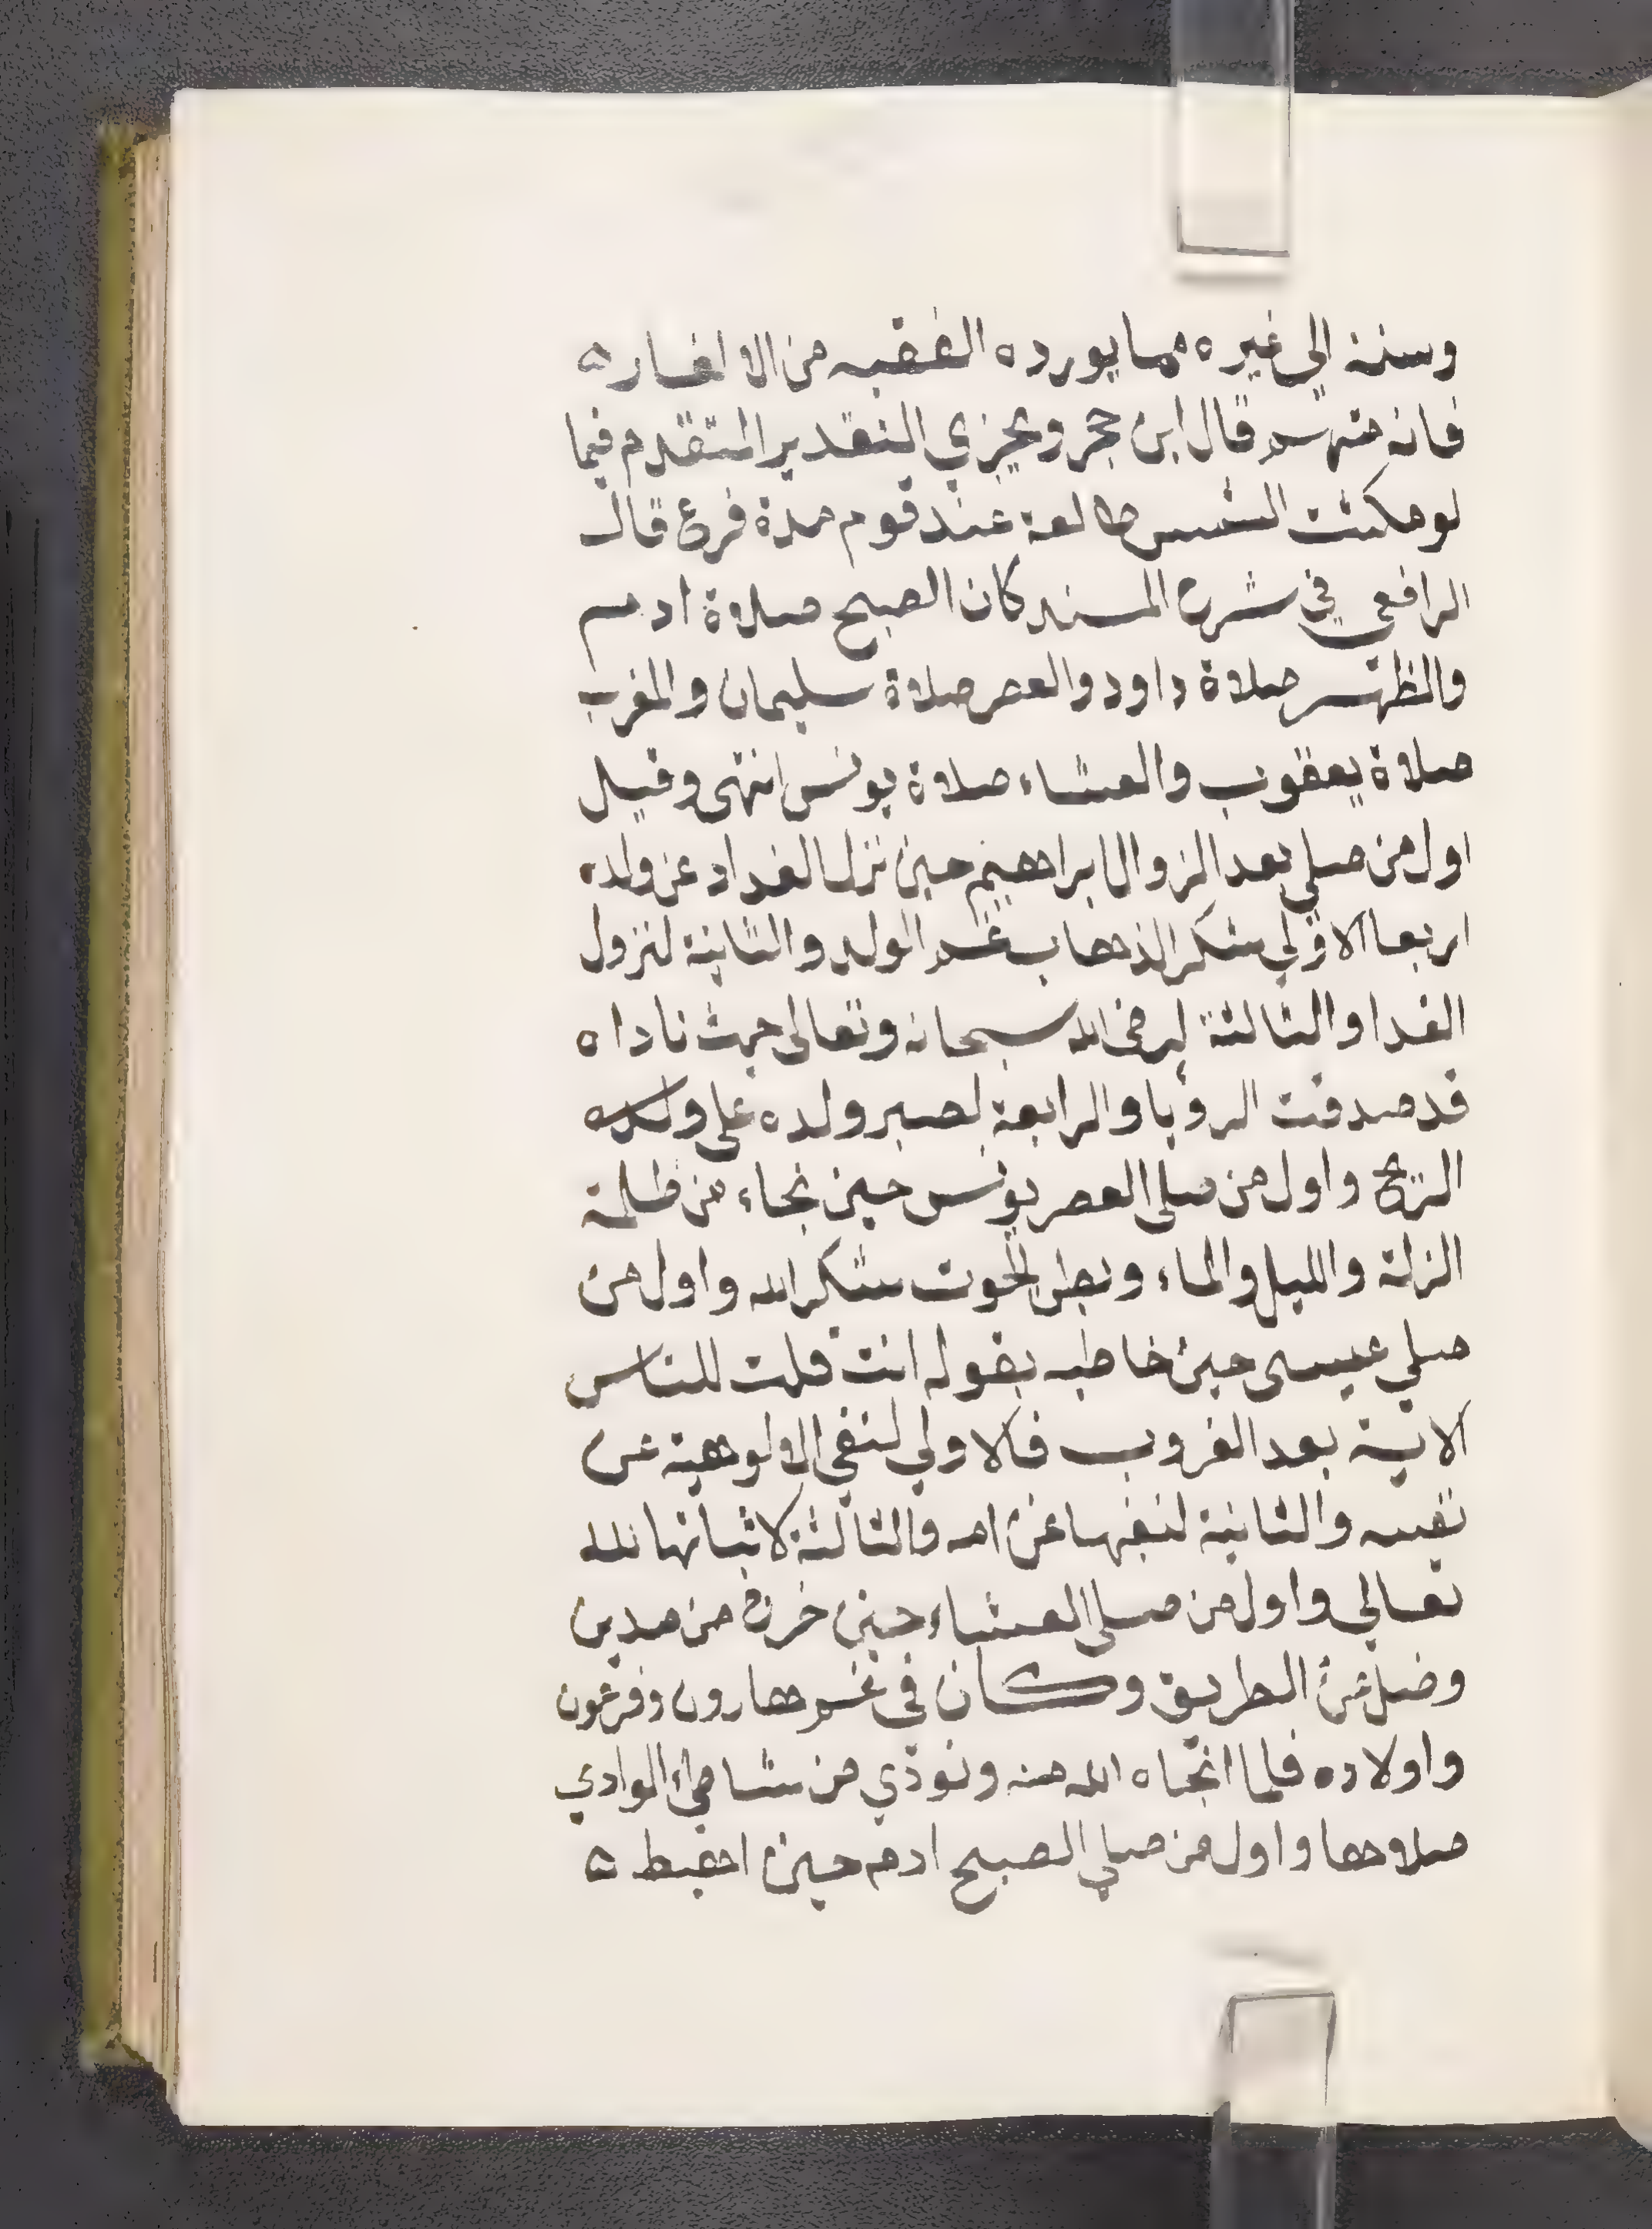 وسنة الي غيره مما يورده الفقيه من الاخبار ه
فانه قال ابن حجر ويجزي التقدير المتقدم فيما
لو مكثت الشمس طالعة عند قوم مدة فرع قال
الرافعي في شرح المسند كان الصبح صلاة ادم
والظهر صلاة داود والعصر صلاة سليمان والمغرب
صلاة يعقوب والعشاء صلاة يونس انتهى وقيل
اول من صلي بعد الزوال ابراهيم حين نزل الفداء عن ولده
اربعا الاولي شكر الذهاب غم الولد والثانية لنزول
الفدا والثالثة لرضى الله سبحانه وتعالى حيث ناداه
قد صدقت الرويا والرابعة لصبر ولده على ولده
الذبح واول من صلى العصر يونس حين نجاء من ظلمة
الزلة والليل والماء وبطن الحوت شكر الله واول من
صلي عيسى حين خاطبه بقوله انت قلت للناس
الاية بعد الغروب فالاولي لنفي الالوهية عن
نفسه والثانية لنفيها عن امه والثالثة لاثباتها لله
تعالي واول من صلى العشاء حين خرج من مدين
وضل عن الطريق وكان في غم هارون وفرعون
واولاده فلما انجاه الله منه ونودي من شاطئ الوادي
صلاها واول من صلي الصبح ادم حين اهبط ه